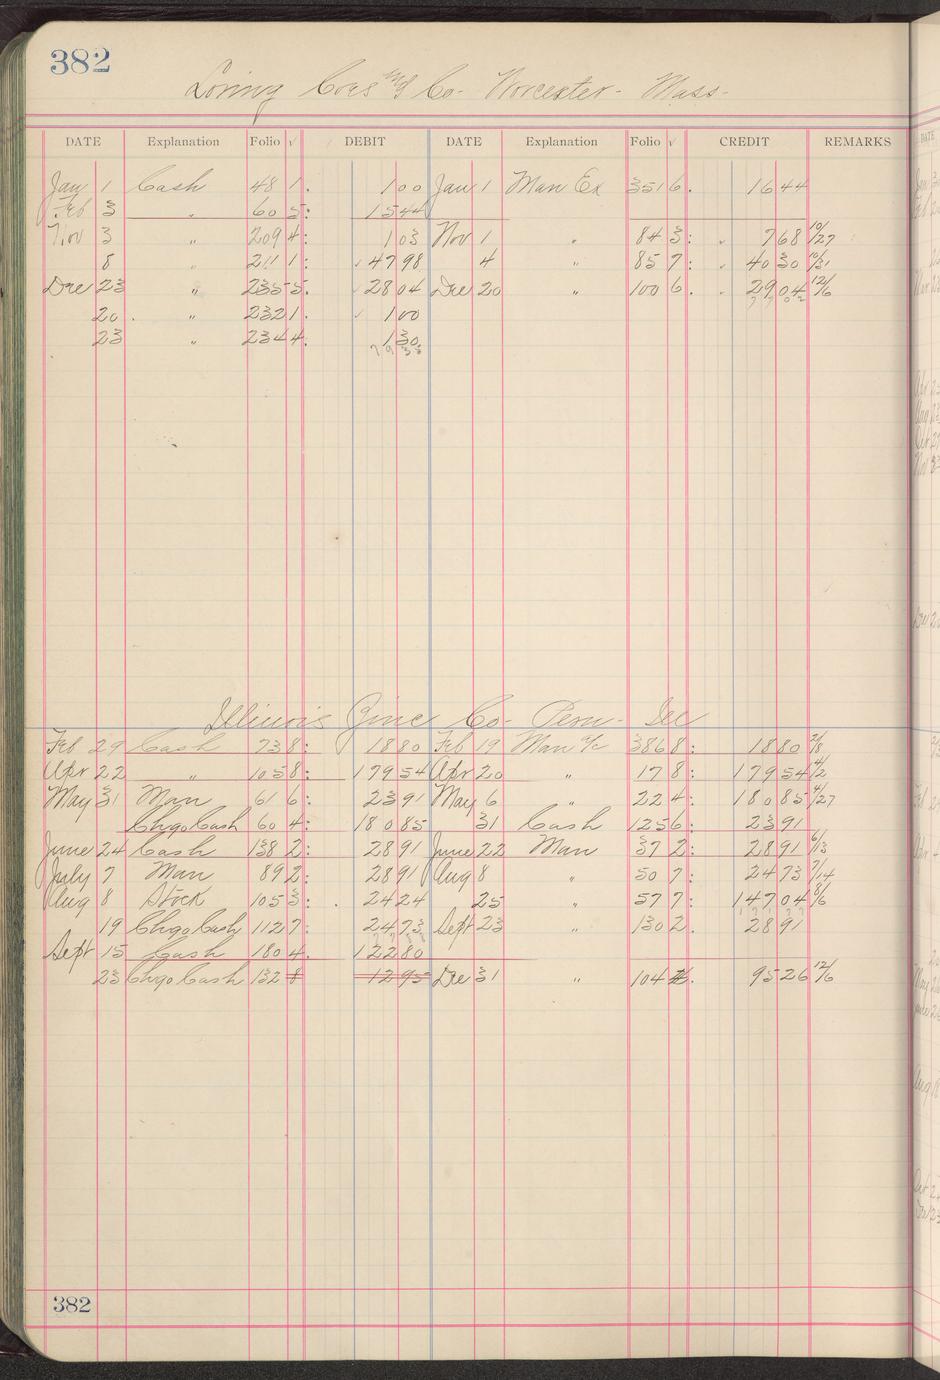 382
Loring Coes Mfg Co- Worcester- Mass-
DATE Explanation Folio √ DEBIT DATE Explanation Folio √ CREDIT REMARKS
Jan 1 Cash 48 1. 1 00 Jan 1 Man Ex 351 6. 16 44
Feb 3 " 60 5: 15 44
Nov 3 " 209 4: 1 03 Nov 1 " 84 3: 7 68 10/27
8 " 211 1: 47 98 4 " 85 7: 40 30 10/31
Dec 23 " 235 5. 28 04 Dec 20 " 100 6. 29 04 12/6
20 " 232 1. 1 00
23 " 234 4. 1 30
79 33
Illinois Zinc Co- Peru- Ill
Feb 29 Cash 73 8: 18 80 Feb 19 Man a/c 386 8: 18 80 2/8
Apr 22 " 105 8: 179 54 Apr 20 " 17 8: 179 54 4/2
May 31 Man 61 6: 23 91 May 6 " 22 4: 180 85 4/27
Chgo Cash 60 4: 180 85 31 Cash 125 6: 23 91
June 24 Cash 138 2: 28 91 June 22 Man 37 2: 28 91 6/13
July 7 Man 89 2: 28 91 Aug 8 " 50 7: 24 73 7/14
Aug 8 Stock 105 3: 24 24 25 " 57 7: 147 04 8/6
19 Chgo Cash 112 7: 24 73 Sept 23 " 130 2. 28 91
Sept 15 Cash 180 4. 122 80
23 Chgo Cash 132 8 12 95 Dec 31 " 104 . 95 26 12/6
382